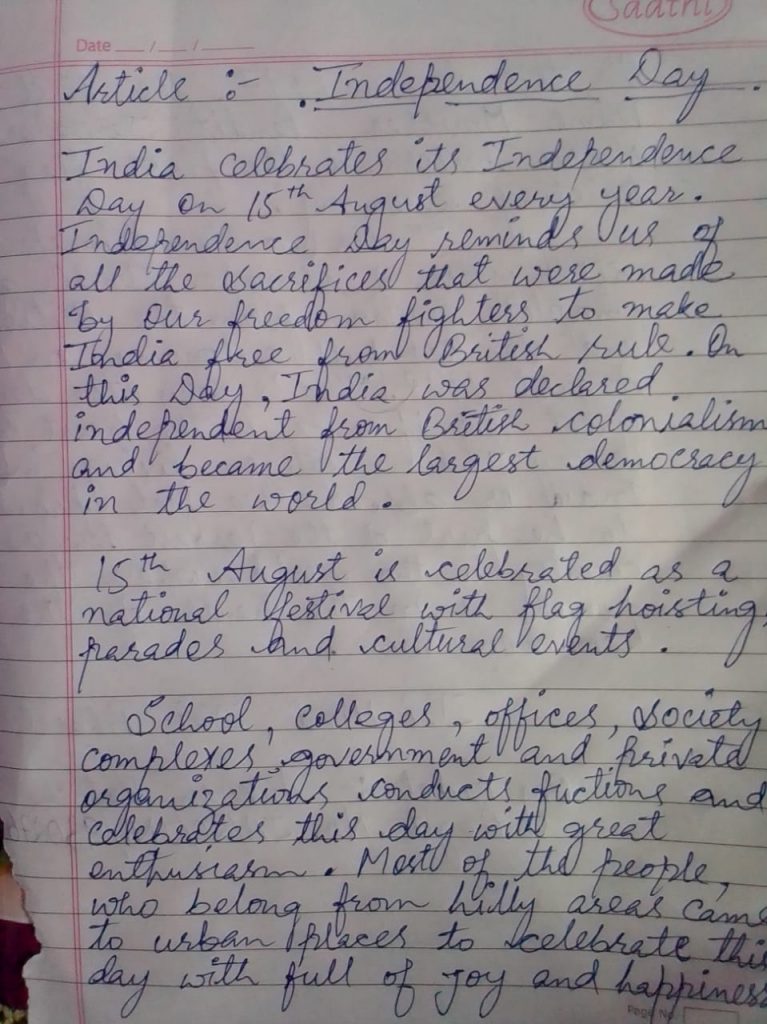 Saathi
Date __/__/____
Article :- . Independence Day .
India celebrates its Independence
Day on 15th August every year.
Independence Day reminds us of
all the sacrifices that were made
by our freedom fighters to make
India free from British rule. On
this Day, India was declared
independent from British colonialism
and became the largest democracy
in the world.
15th August is celebrated as a
national festival with flag hoisting,
parades and cultural events.
School, colleges, offices, society
complexes, government and private
organizations conducts fuctions and
celebrates this day with great
enthusiasm. Most of the people,
who belong from hilly areas came
to urban places to celebrate this
day with full of joy and happiness
Page No.